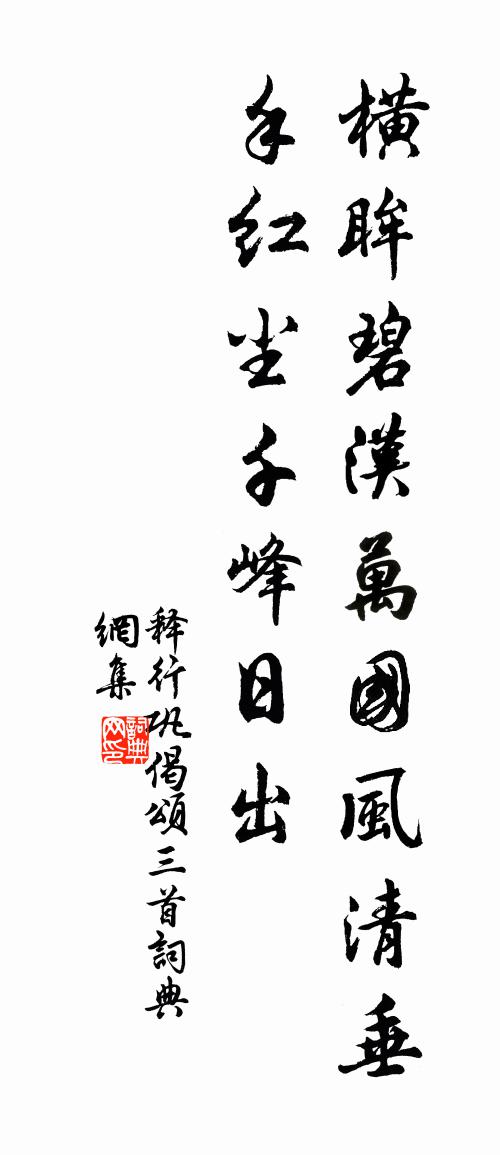 橫眸碧漢萬國風清垂
手红尘千峰日出
释行巩偈頌三首詞典
網集
詞典
网印